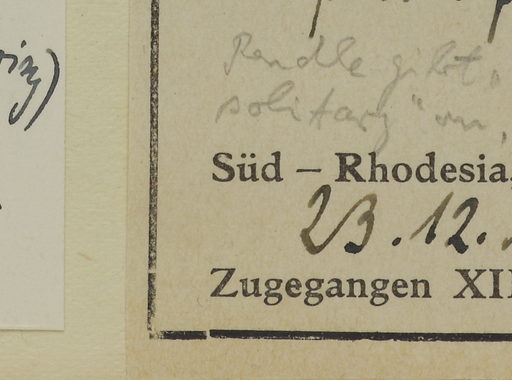 Rendle gibt „
solitary“ an,
Süd – Rhodesia,
23.12.
Zugegangen XII